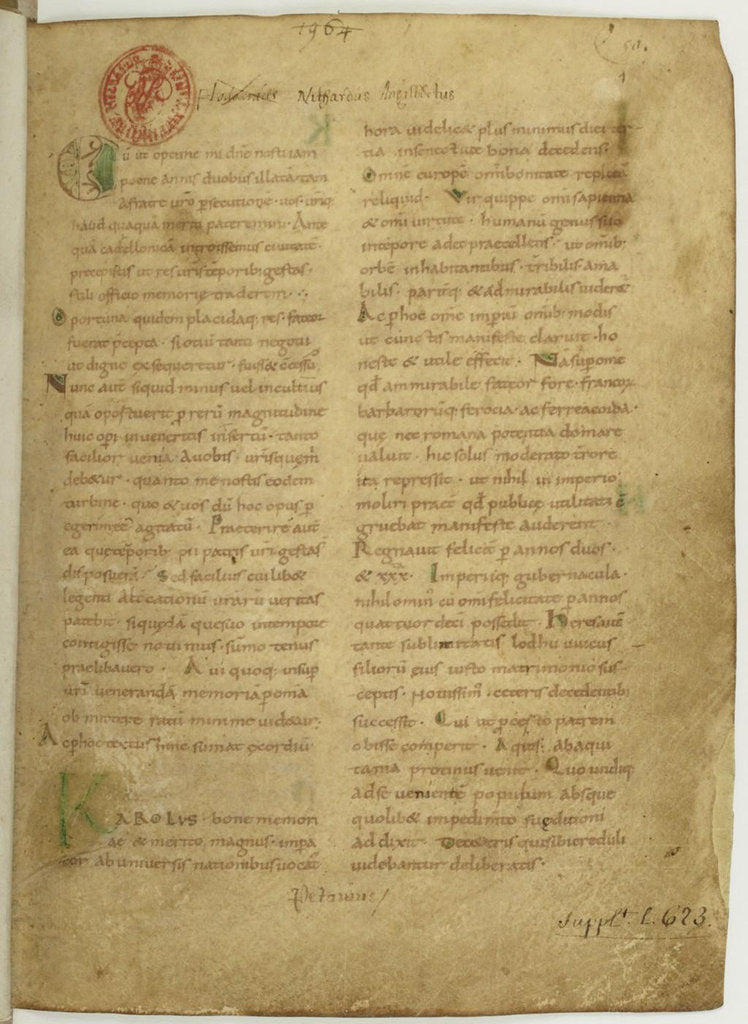 1964
Nithardus Angilbertus
Cū ut optime mi dn̄e nosti iam
pœne annis duobus illatā tam
a fratre uro psecutionē · uos · urīq;
haud quaquā meriti pateremini · Ante
quā cadellonicā ingrossemus ciuitatē ·
precepistis ut res uris tēporib; gestas ·
stili officio memoriȩ traderem ·
Oportuna quidem placidaq; res · fateor
fuerat p̄cepta · si otiū tanti negotii
ut digne exsequeretur ·
Nunc aut̄ siquid minus uel incultius
qua oportuerit p rerū magnitudine
huic opi inueneritis insertū · tanto
facilior uenia Auobis · urisq
debetur · quanto me nostis eodem
turbine · quo & uos dū hoc opus p
egerim eē agitatū · Praeterire aut̄
ea quȩ tēporib; pii patris uri gesta s
disposuerā · Sed facilius cuilib&
legenti Altercationū urarū ueritas
patebit · si quȩdā quȩ suo in tempore
contigisse nouimus · sūmo tenus
praelibauero · A ui quoq; insup
uri uenerandā memoriā p omīa
obmittere ratū minime uidetur ·
Ac p hoc textus hinc sumat exordiū
KAROLVS · bone memori
ae & merito magnus · impa
tor ab uniuersis nationibus uocat
hora uidelic& plus minimus diei ter
tia · in senectute bona decedens ·
Omnē europā omī bonitate repletā
reliquid · Vir quippe omī sapientia
& omī uirtute · humanū genus suo
in tēpore adeo praecellens · ut omīb;
orbē inhabitantibus · tribilis · ama
bilis · pariterq; & admirabilis uideret
Ac p hoc omē imperiū omīb; modis
ut cunctis manifeste claruit · ho
neste & utile effecit · Nā sup omē
qd̄ ammirabile fateor fore · francorū
barbarorūq; ferocia · ac ferrea corda ·
que nec romana potentia domare
ualuit · hic solus moderato t̄rore
ita repressit · ut nihil in imperio
moliri praet̄ qd̄ publicȩ utilitati cō
gruebat manifeste auderent ·
Regnauit felicit̄ p annos duos ·
& xxx · Imperiiq; gubernacula ·
nihilomin; cū omī felicitate p annos
quattuor deci possedit · Heres aut̄
tantȩ sublimitatis lodhuuuicus
filiorū eius iusto matrimonio sus
ceptis · nouissim; ceteris decedentib;
successit · Qui ut p certo patrem
obisse comperit · Aquis; ab aqui
tania protinus uenit · Quo undiq;
ad se uenientē populum absque
quolib& impedimto suȩ ditioni
addixit · De ceteris qui sibi creduli
uidebantur deliberatis ·
Petauius
Supplt. L. 623.